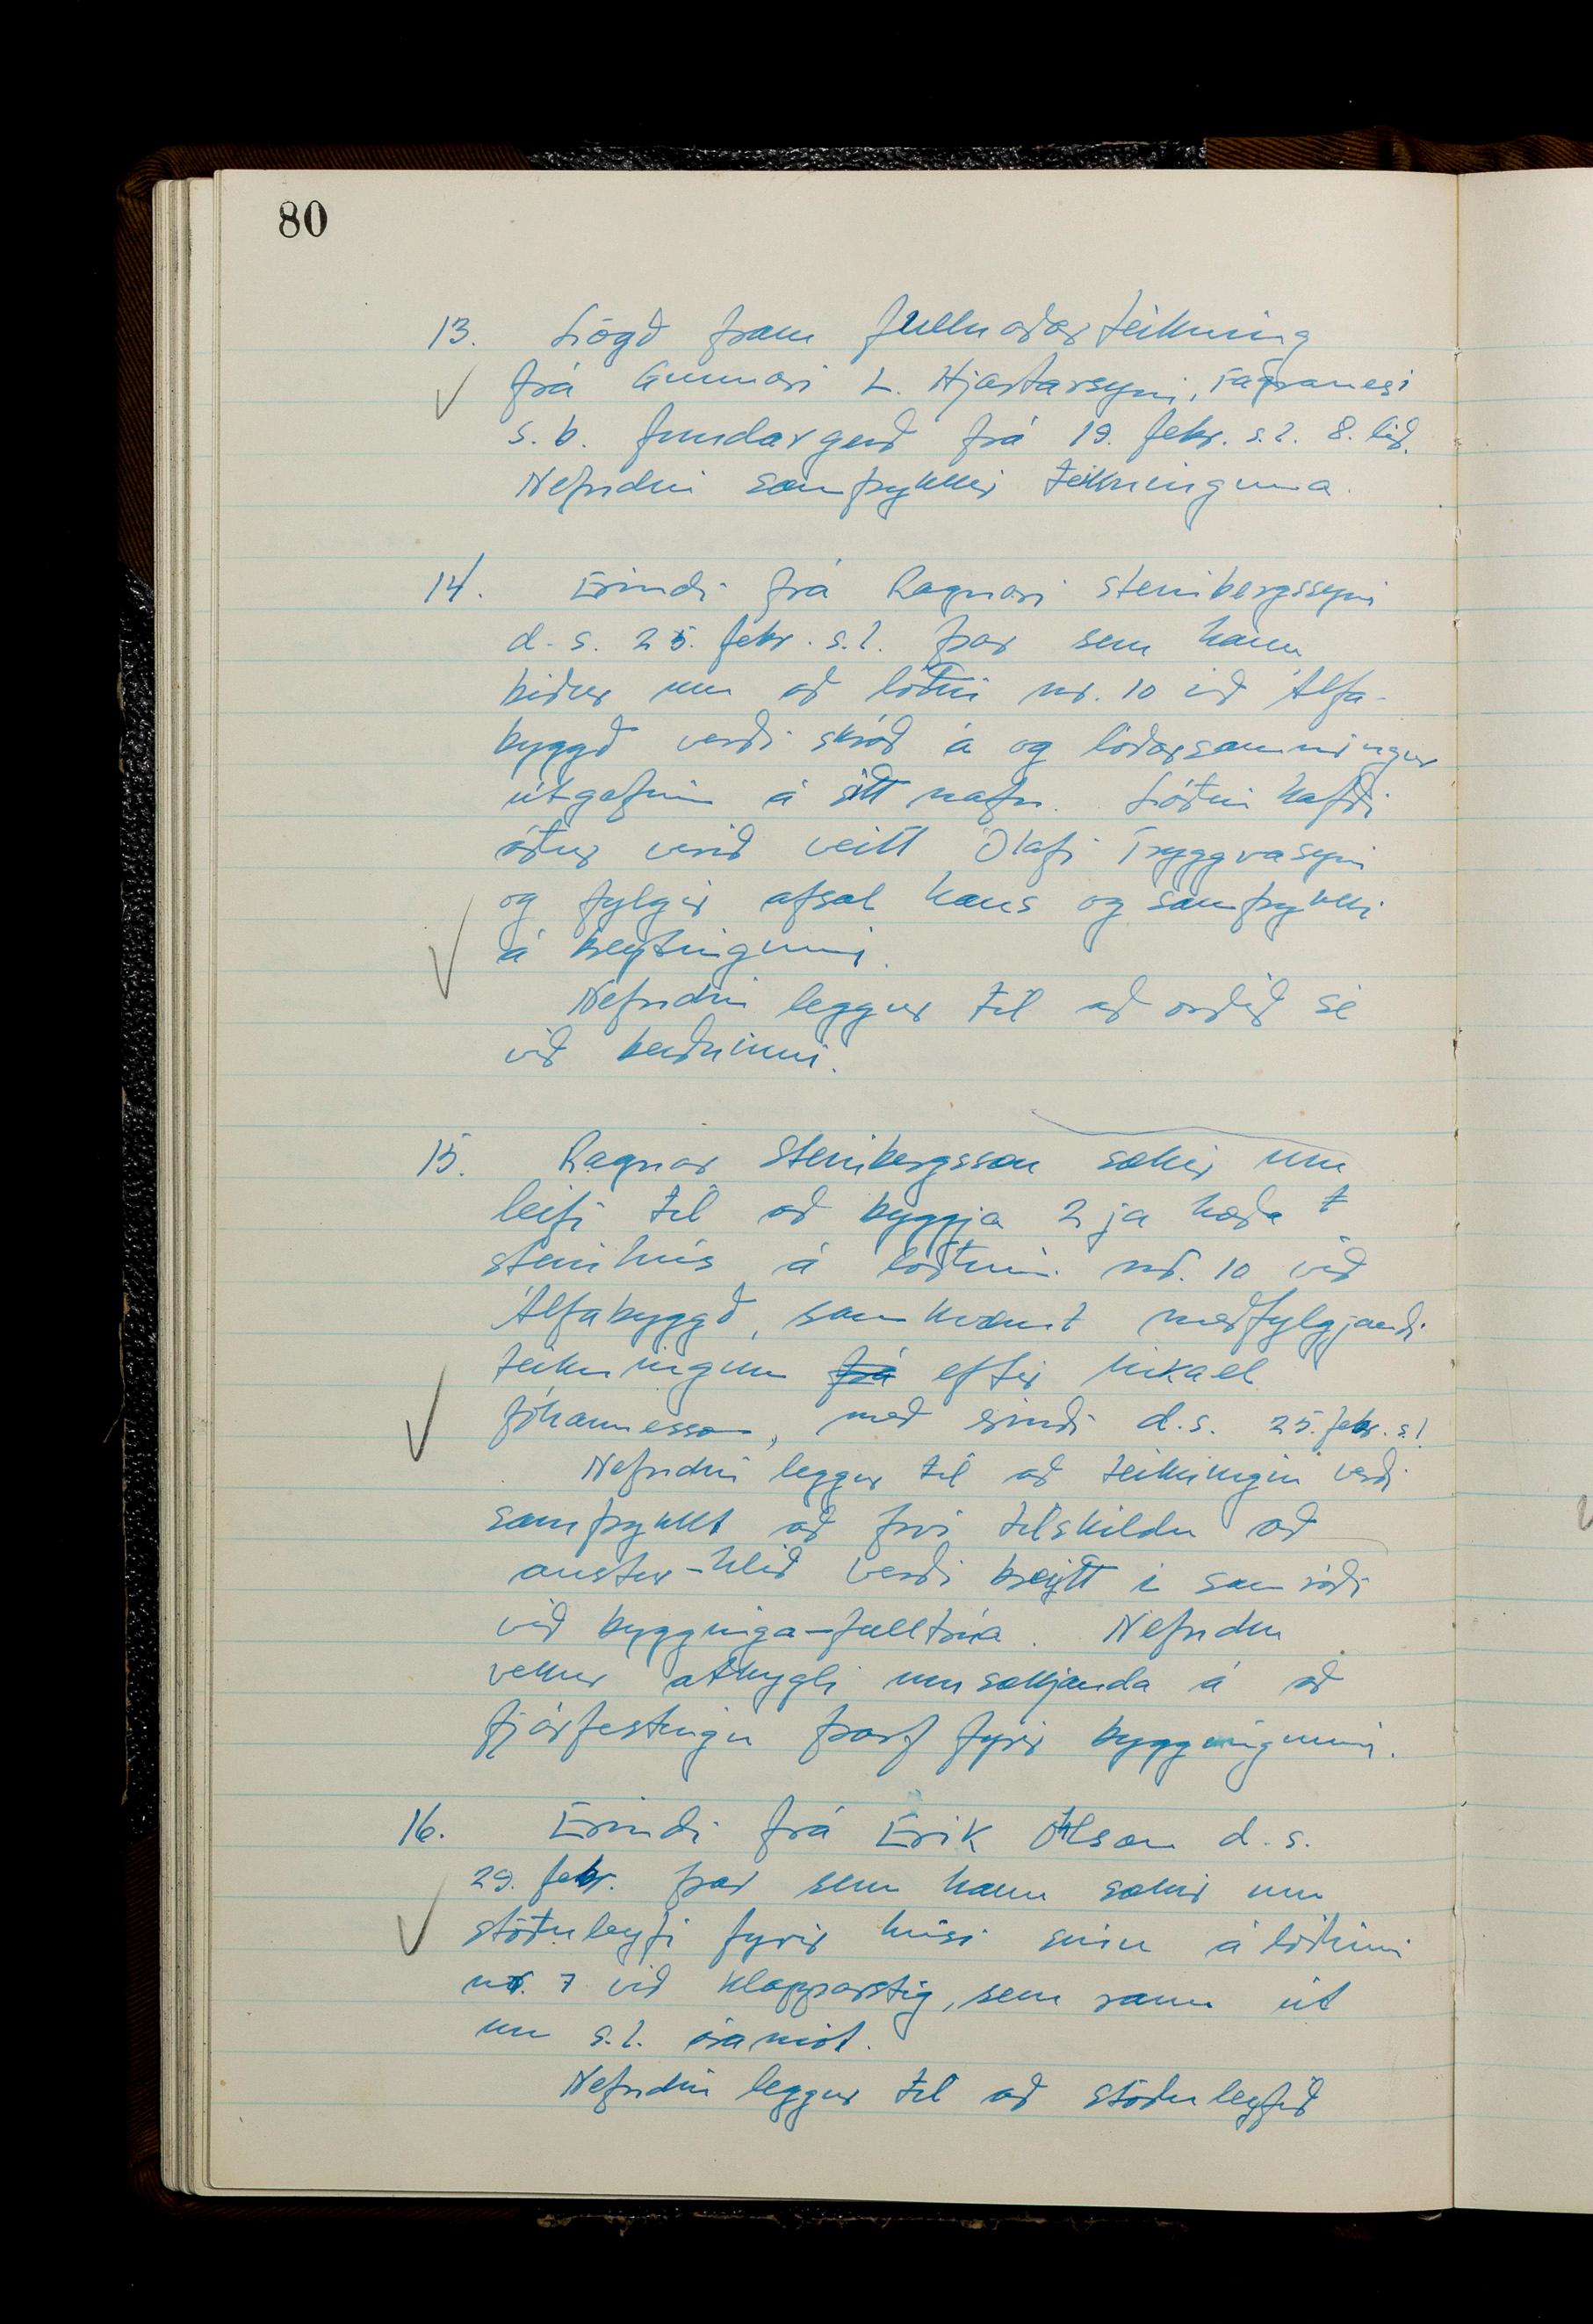 80
13. Lögð fram fullnaðarteikning
frá Gunnari L. Hjartarsyni, Fagranesi
s.b. fundargerð frá 19. febr. s.l. 8. lið.
Nefndin samþykkir teikninguna.
14. Erindi frá Ragnari Steinbergssyni
d.s. 25. febr. s.l. þar sem hann
biður um að lóðin nr. 10 við Álfa-
byggð verði skráð á og lóðarsamningur
útgefinn á sitt nafn. Lóðin hafði
áður verið veitt Ólafi Tryggvasyni
og fylgir afsal hans og samþykki
á breytingunni.
Nefndin leggur til að orðið sé
við beiðninni.
15. Ragnar Steinbergsson sækir um
leifi til að byggja 2ja hæða
steinhús á lóðinni nr. 10 við
Álfabyggð, samkvæmt meðfylgjandi
teikningum frá eftir Mikael
Jóhannesson, með erindi d.s. 25. febr. s.l.
Nefndin leggur til að teikningin verði
samþykkt að því tilskildu að
austur-hlið verði breytt í samráði
við bygginga-fulltrúa. Nefndin
vekur athygli umsækjanda á að
fjárfestingu þarf fyrir byggingunni.
16. Erindi frá Erik Ólsen d.s.
29. febr. þar sem hann sækir um
stöðuleyfi fyrir húsi sínu á lóðinni
nr. 7 við Klapparstig, sem rann út
um s.l. áramót.
Nefndin leggur til að stöðuleyfið